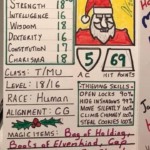 STRENGTH 18
INTELLIGENCE 16
WISDOM 18
DEXTERITY 16
CONSTITUTION 17
CHARISMA 18
5
69
AC
HIT POINTS
CLASS: T/MU
LEVEL: 18/16
RACE: Human
ALIGNMENT: CG
THIEVING SKILLS
OPEN LOCKS
HIDE IN SHADOWS
MOVE SILENTLY
CLIMB CHIMNEYS
STEAL COOKIES
MAGIC ITEMS: Bag of Holding,
Boots of Elvenkind, Cap